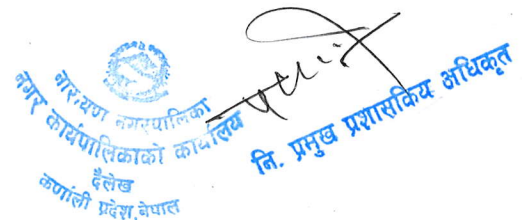 नारायण नगरपालिका
नगर कार्यपालिकाको कार्यालय
दैलेख
कर्णाली प्रदेश, नेपाल
नि. प्रमुख प्रशासकिय अधिकृत